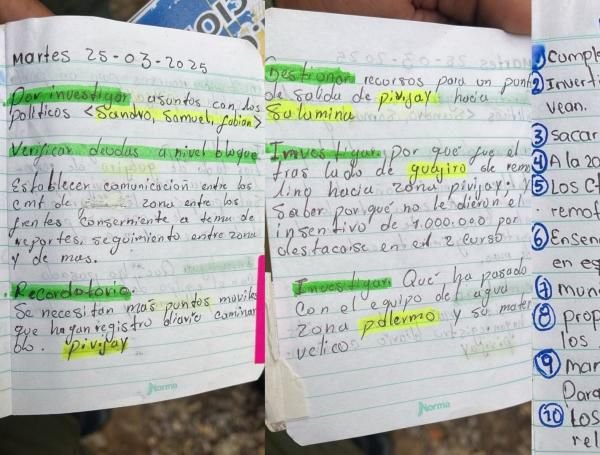 Martes 25-03-2025
Dar investigar asuntos con los
politicos <Sandro, Samuel, fabian>
Verificar deudas a nivel bloque
Establecer comunicación entre los
cmt de zona entre los
frentes conserniente a tema de
reportes, seguimiento entre zona
y de mas.
. Recordatorio.
Se necesitan mas puntos moviles
que hagan registro diario caminan
do. pivijay
Norma
Gestionar recursos para un punto
de salida de pivijay hacia
Salamina
Investigar por qué fue el
traslado de guajiro de remo
lino hacia zona pivijay. y
saber por qué no le dieron el
insentivo de 1.000.000 por
destacarse en el 2 curso
Investigar Qué ha pasado
Con el equipo de agua
zona palermo y su mater
vetico
Norma
① Cumpl
② Inverti
vean.
③ Sacar
④ A la 20
⑤ LOS C
remo
⑥ Ensen
en es
⑦ mun
⑧ prop
los
⑨ mar
Para
⑩ LOS
rel